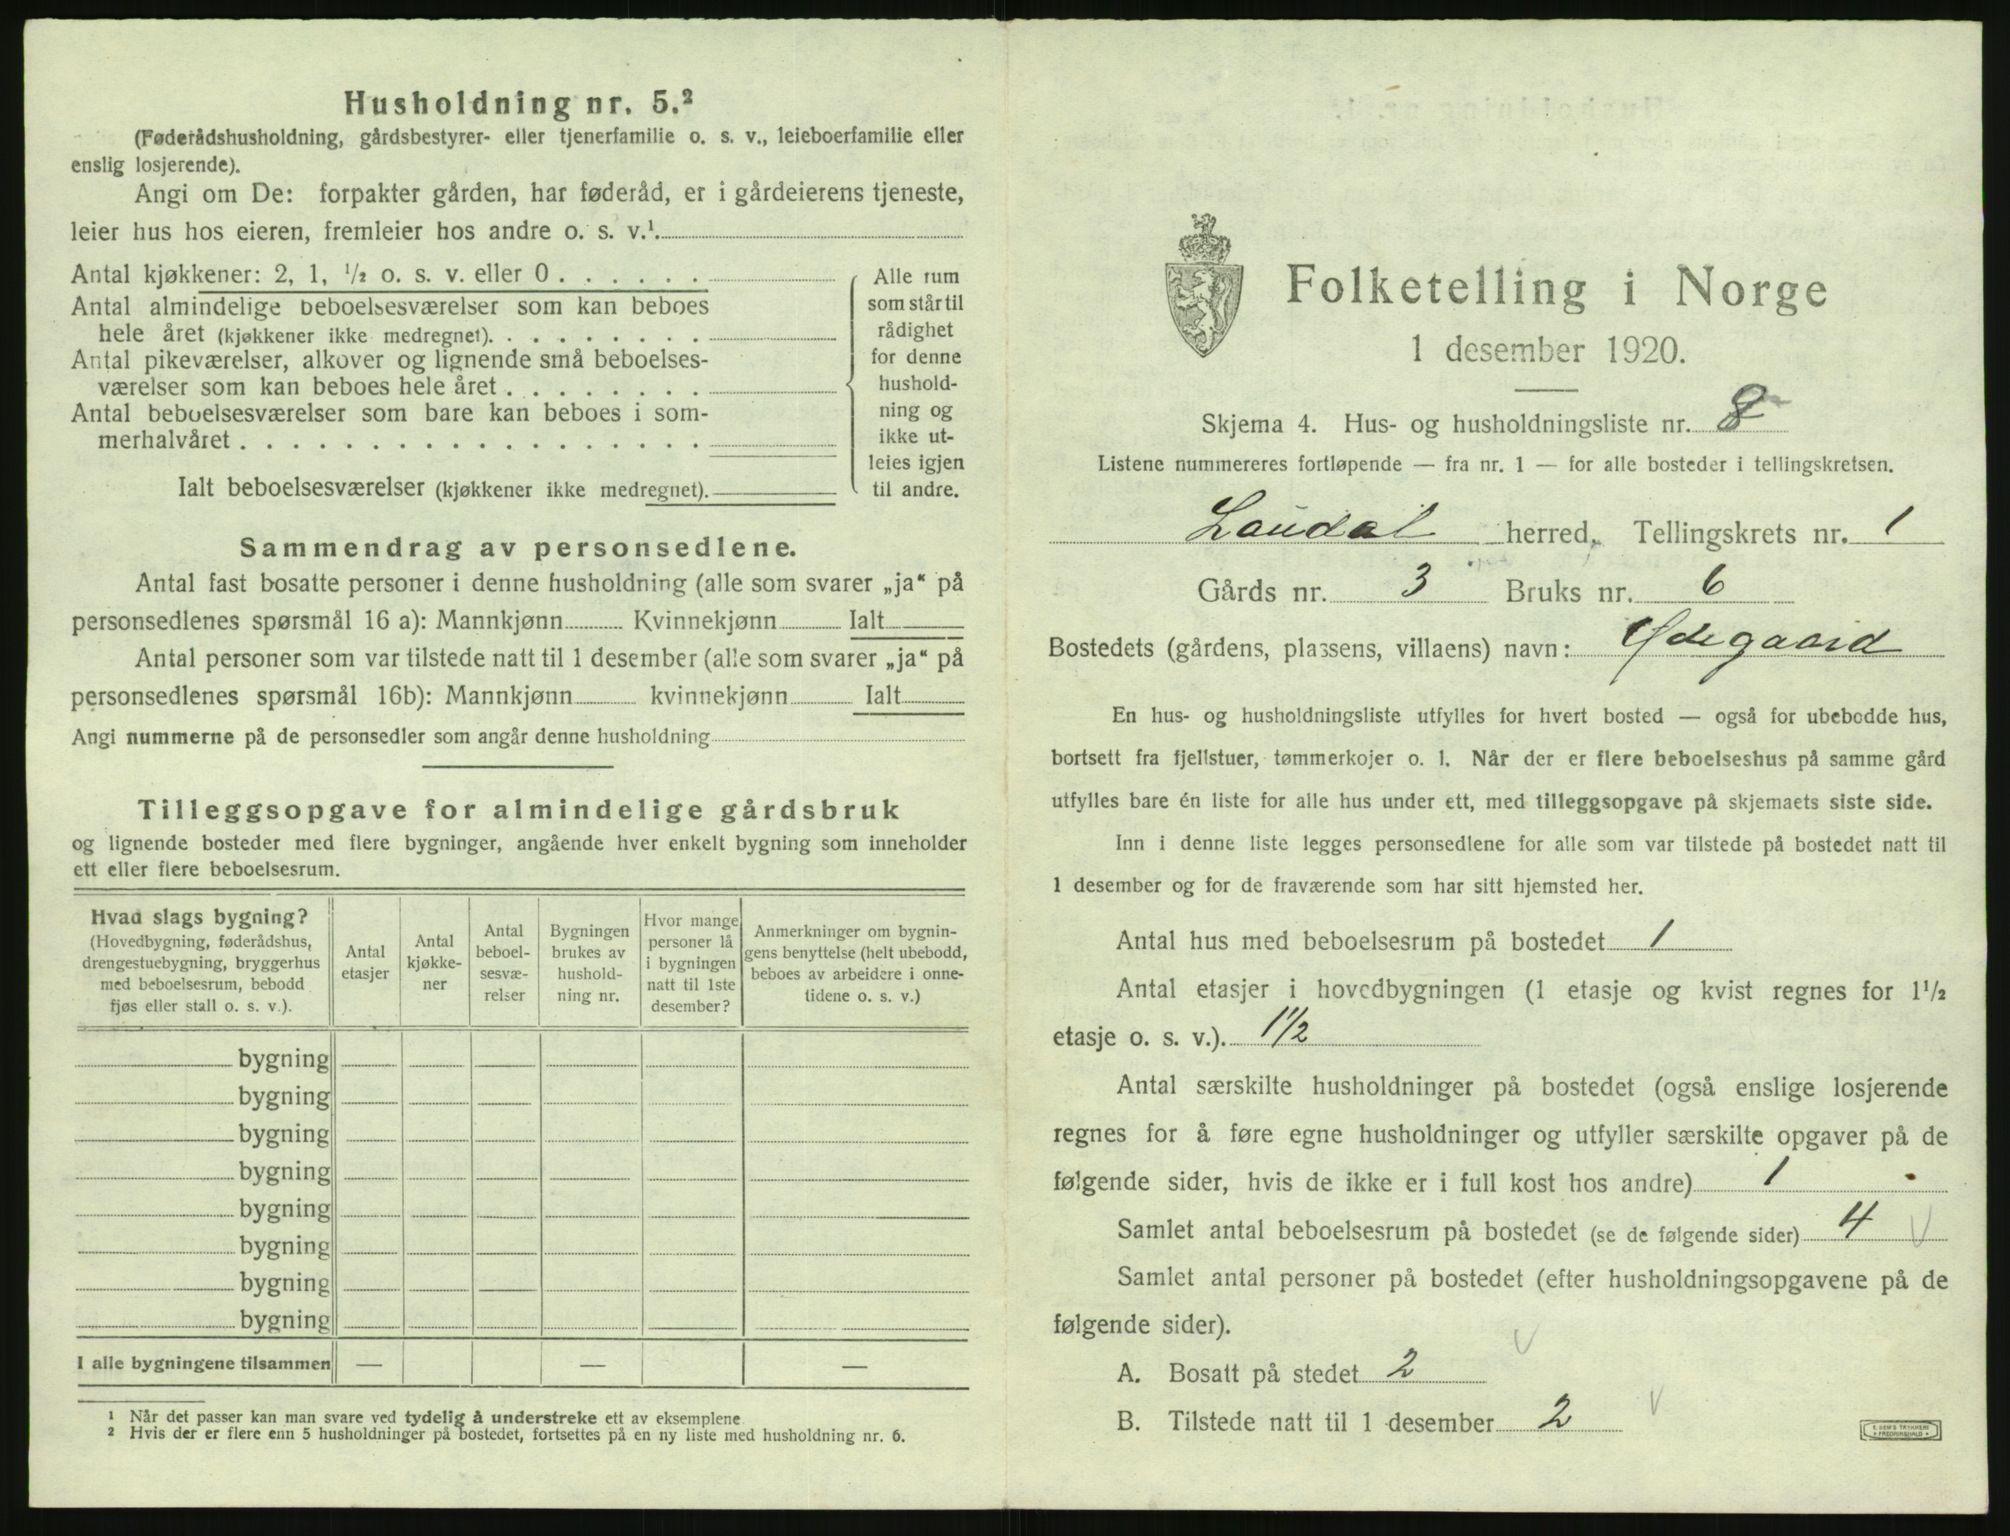 Husholdning nr. 5.²
(Føderådshusholdning, gårdsbestyrer- eller tjenerfamilie o. s. v., leieboerfamilie eller
enslig losjerende).
Angi om De: forpakter gården, har føderåd, er i gårdeierens tjeneste,
leier hus hos eieren, fremleier hos andre o. s. v.¹
Antal kjøkkener: 2, 1, ½ o. s. v. eller 0
Antal almindelige beboelsesværelser som kan beboes
hele året (kjøkkener ikke medregnet).
Antal pikeværelser, alkover og lignende små beboelses-
værelser som kan beboes hele året
Antal beboelsesværelser som bare kan beboes i som-
merhalvåret
Ialt beboelsesværelser (kjøkkener ikke medregnet).
Alle rum
som står til
rådighet
for denne
hushold-
ning og
ikke ut-
leies igjen
til andre.
Sammendrag av personsedlene.
Antal fast bosatte personer i denne husholdning (alle som svarer „ja“ på
personsedlenes spørsmål 16 a): Mannkjønn Kvinnekjønn Ialt
Antal personer som var tilstede natt til 1 desember (alle som svarer „ja“ på
personsedlenes spørsmål 16b): Mannkjønn kvinnekjønn Ialt
Angi nummerne på de personsedler som angår denne husholdning
Tilleggsopgave for almindelige gårdsbruk
og lignende bosteder med flere bygninger, angående hver enkelt bygning som inneholder
ett eller flere beboelsesrum.
Hvad slags bygning?
(Hovedbygning, føderådshus,
drengestuebygning, bryggerhus
med beboelsesrum, bebodd
fjøs eller stall o. s. v.).
Antal
etasjer
Antal
kjøkke-
ner
Antal
beboel-
sesvæ-
relser
Bygningen
brukes av
hushold-
ning nr.
Hvor mange
personer lå
i bygningen
natt til 1ste
desember?
Anmerkninger om bygnin-
gens benyttelse (helt ubebodd,
beboes av arbeidere i onne-
tidene o. s. v.)
bygning
bygning
bygning
bygning
bygning
bygning
bygning
bygning
I alle bygningene tilsammen — — —
¹ Når det passer kan man svare ved tydelig å understreke ett av eksemplene
² Hvis der er flere enn 5 husholdninger på bostedet, fortsettes på en ny liste med husholdning nr. 6.
Folketelling i Norge
1 desember 1920.
Skjema 4. Hus- og husholdningsliste nr. 8
Listene nummereres fortløpende — fra nr. 1 — for alle bosteder i tellingskretsen.
Laudal herred. Tellingskrets nr. 1
Gårds nr. 3 Bruks nr. 6
Bostedets (gårdens, plassens, villaens) navn: Ødegaard
En hus- og husholdningsliste utfylles for hvert bosted — også for ubebodde hus,
bortsett fra fjellstuer, tømmerkojer o. l. Når der er flere beboelseshus på samme gård
utfylles bare én liste for alle hus under ett, med tilleggsopgave på skjemaets siste side.
Inn i denne liste legges personsedlene for alle som var tilstede på bostedet natt til
1 desember og for de fraværende som har sitt hjemsted her.
Antal hus med beboelsesrum på bostedet 1
Antal etasjer i hovedbygningen (1 etasje og kvist regnes for 1½
etasje o. s. v.). 1½
Antal særskilte husholdninger på bostedet (også enslige losjerende
regnes for å føre egne husholdninger og utfyller særskilte opgaver på de
følgende sider, hvis de ikke er i full kost hos andre) 1
Samlet antal beboelsesrum på bostedet (se de følgende sider) 4
Samlet antal personer på bostedet (efter husholdningsopgavene på de
følgende sider).
A. Bosatt på stedet 2
B. Tilstede natt til 1 desember 2